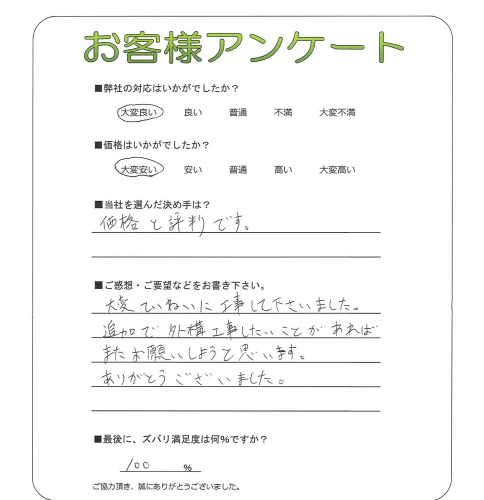 お客様アンケート
■弊社の対応はいかがでしたか？
大変良い 良い 普通 不満 大変不満
■価格はいかがでしたか？
大変安い 安い 普通 高い 大変高い
■当社を選んだ決め手は？
価格と評判です。
■ご感想・ご要望などをお書き下さい。
大変ていねいに工事して下さいました。
追加で外構工事したいことがあれば
またお願いしようと思います。
ありがとうございました。
■最後に、ズバリ満足度は何％ですか？
100 ％
ご協力頂き、誠にありがとうございました。